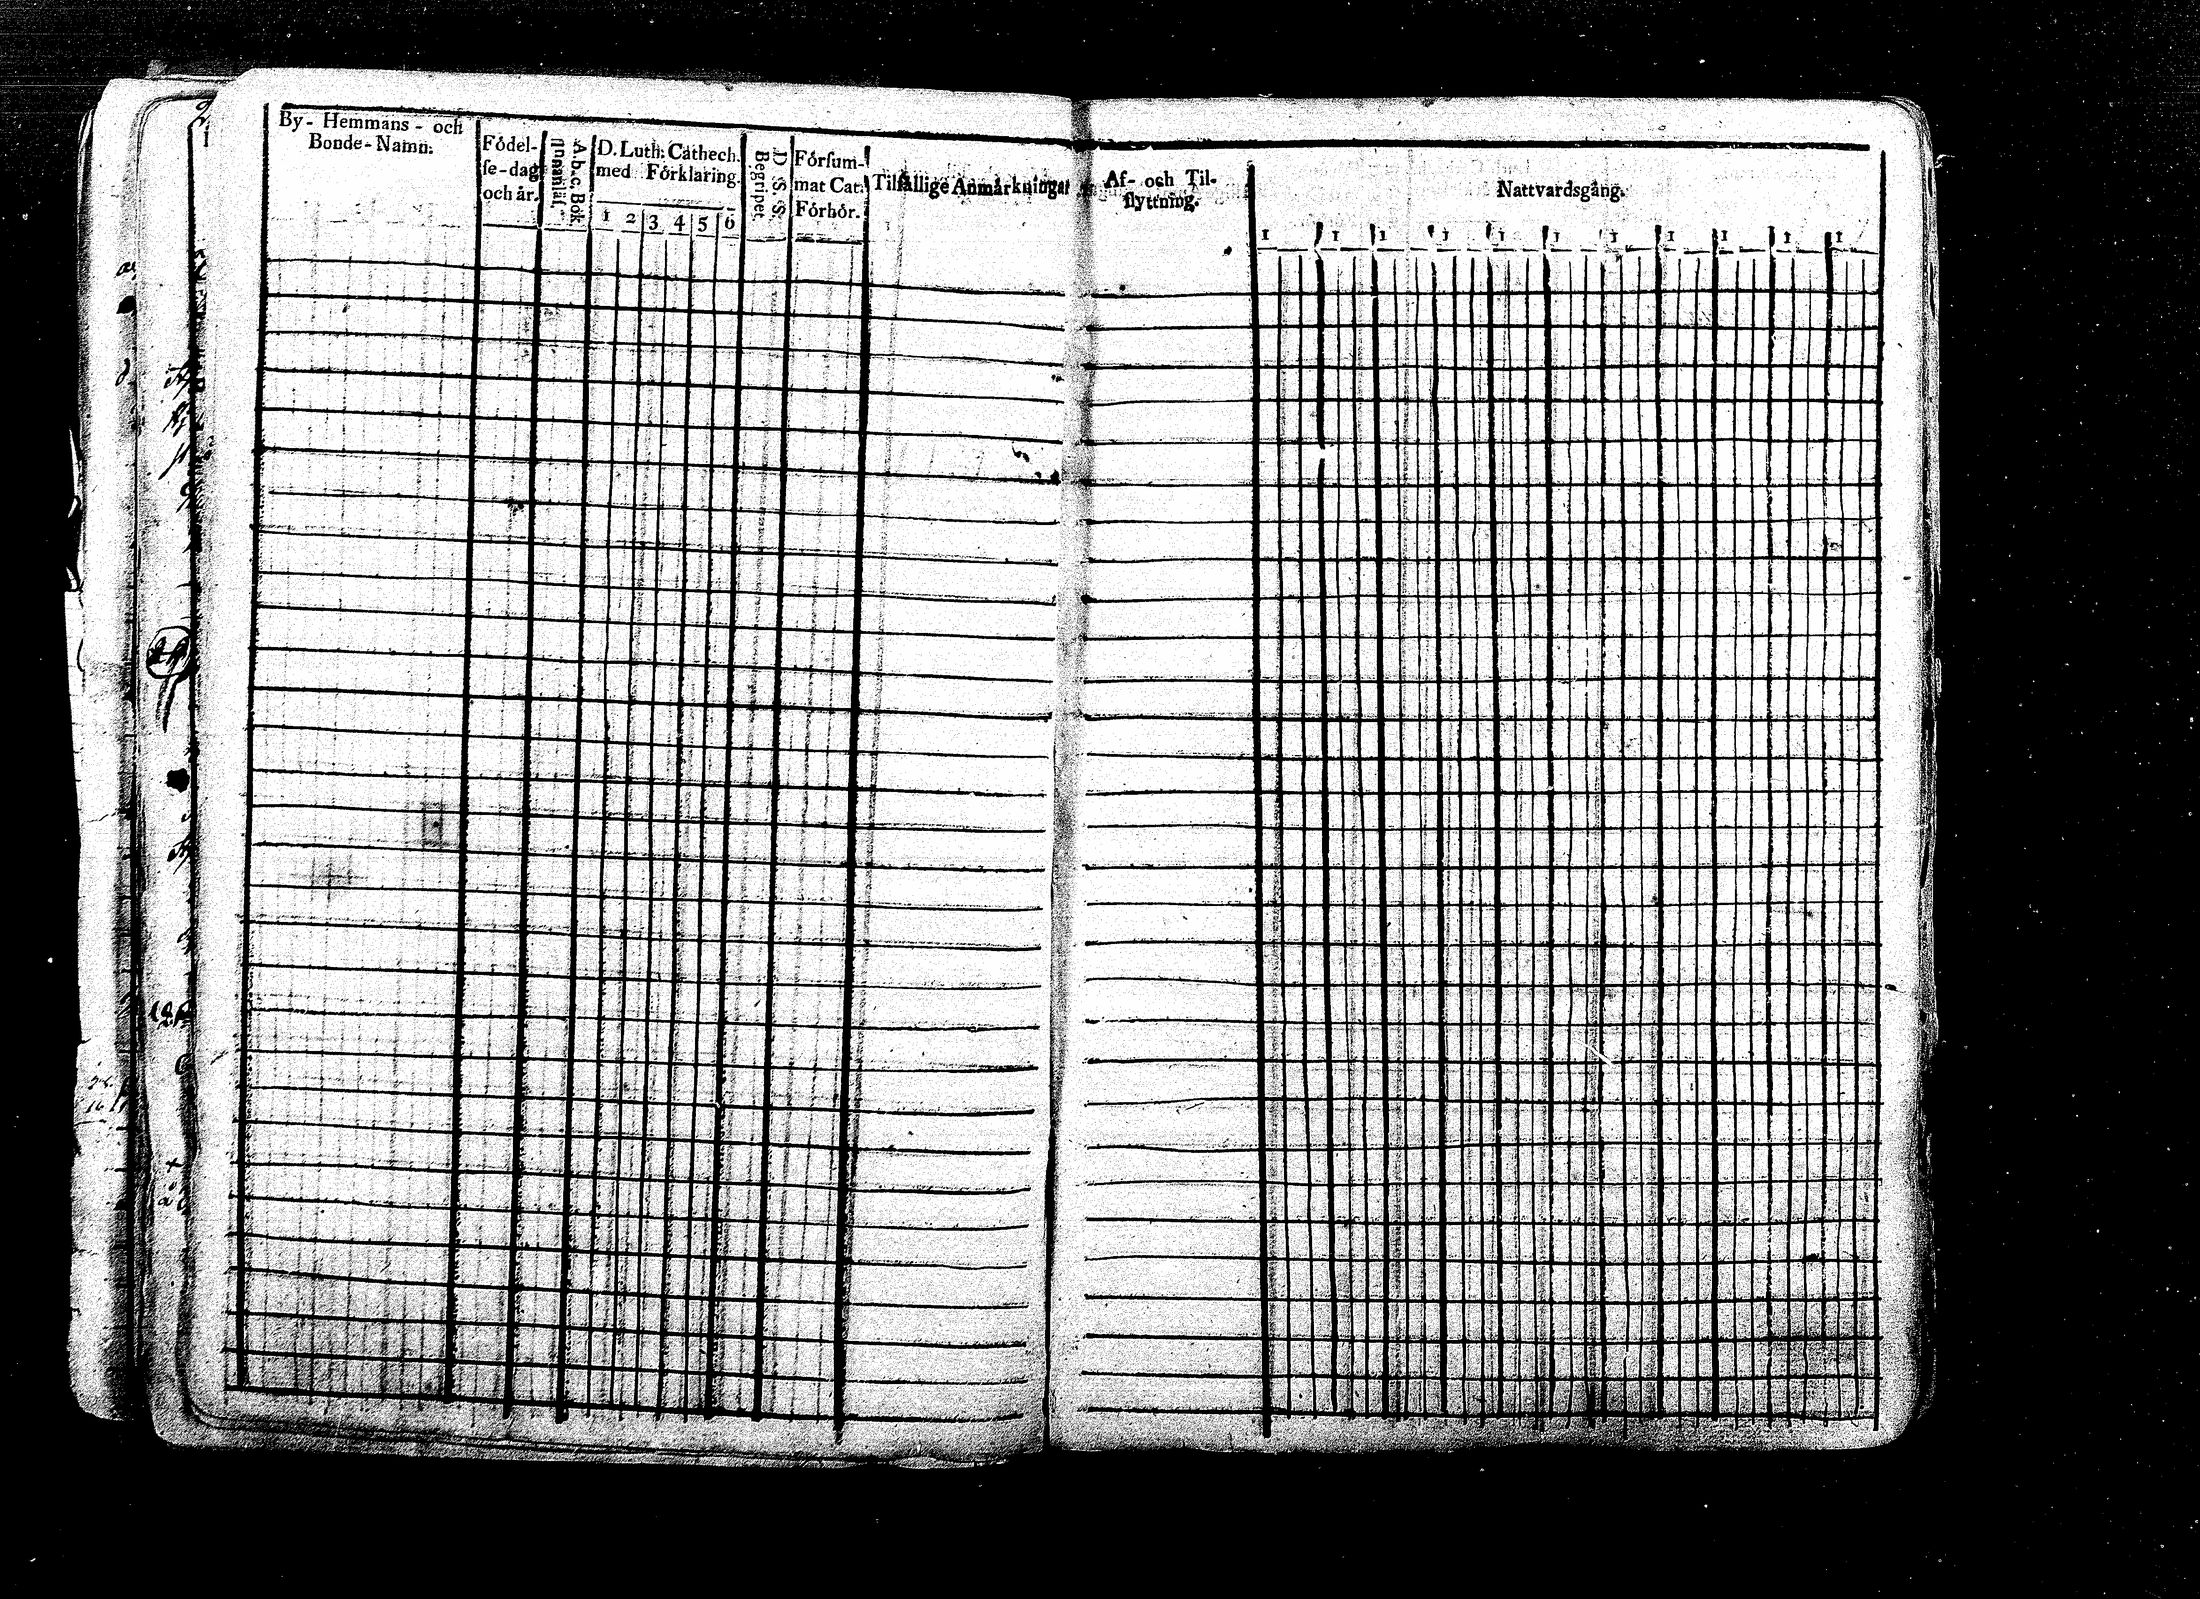 By- Hemmans- och
Bonde-Namn.
Födel-
se-dag
och år.
A.b.c. Bok
innanläs.
D. Luth: Cathech.
med Förklaring.
1 2 3 4 5 6
D. S. S.
Begripet.
Försum-
mat Cat:
Förhör.
Tilfällige Anmärkningar
Af- och Til-
flyttning.
Nattvardsgång.
1 1 1 1 1 1 1 1 1 1 1